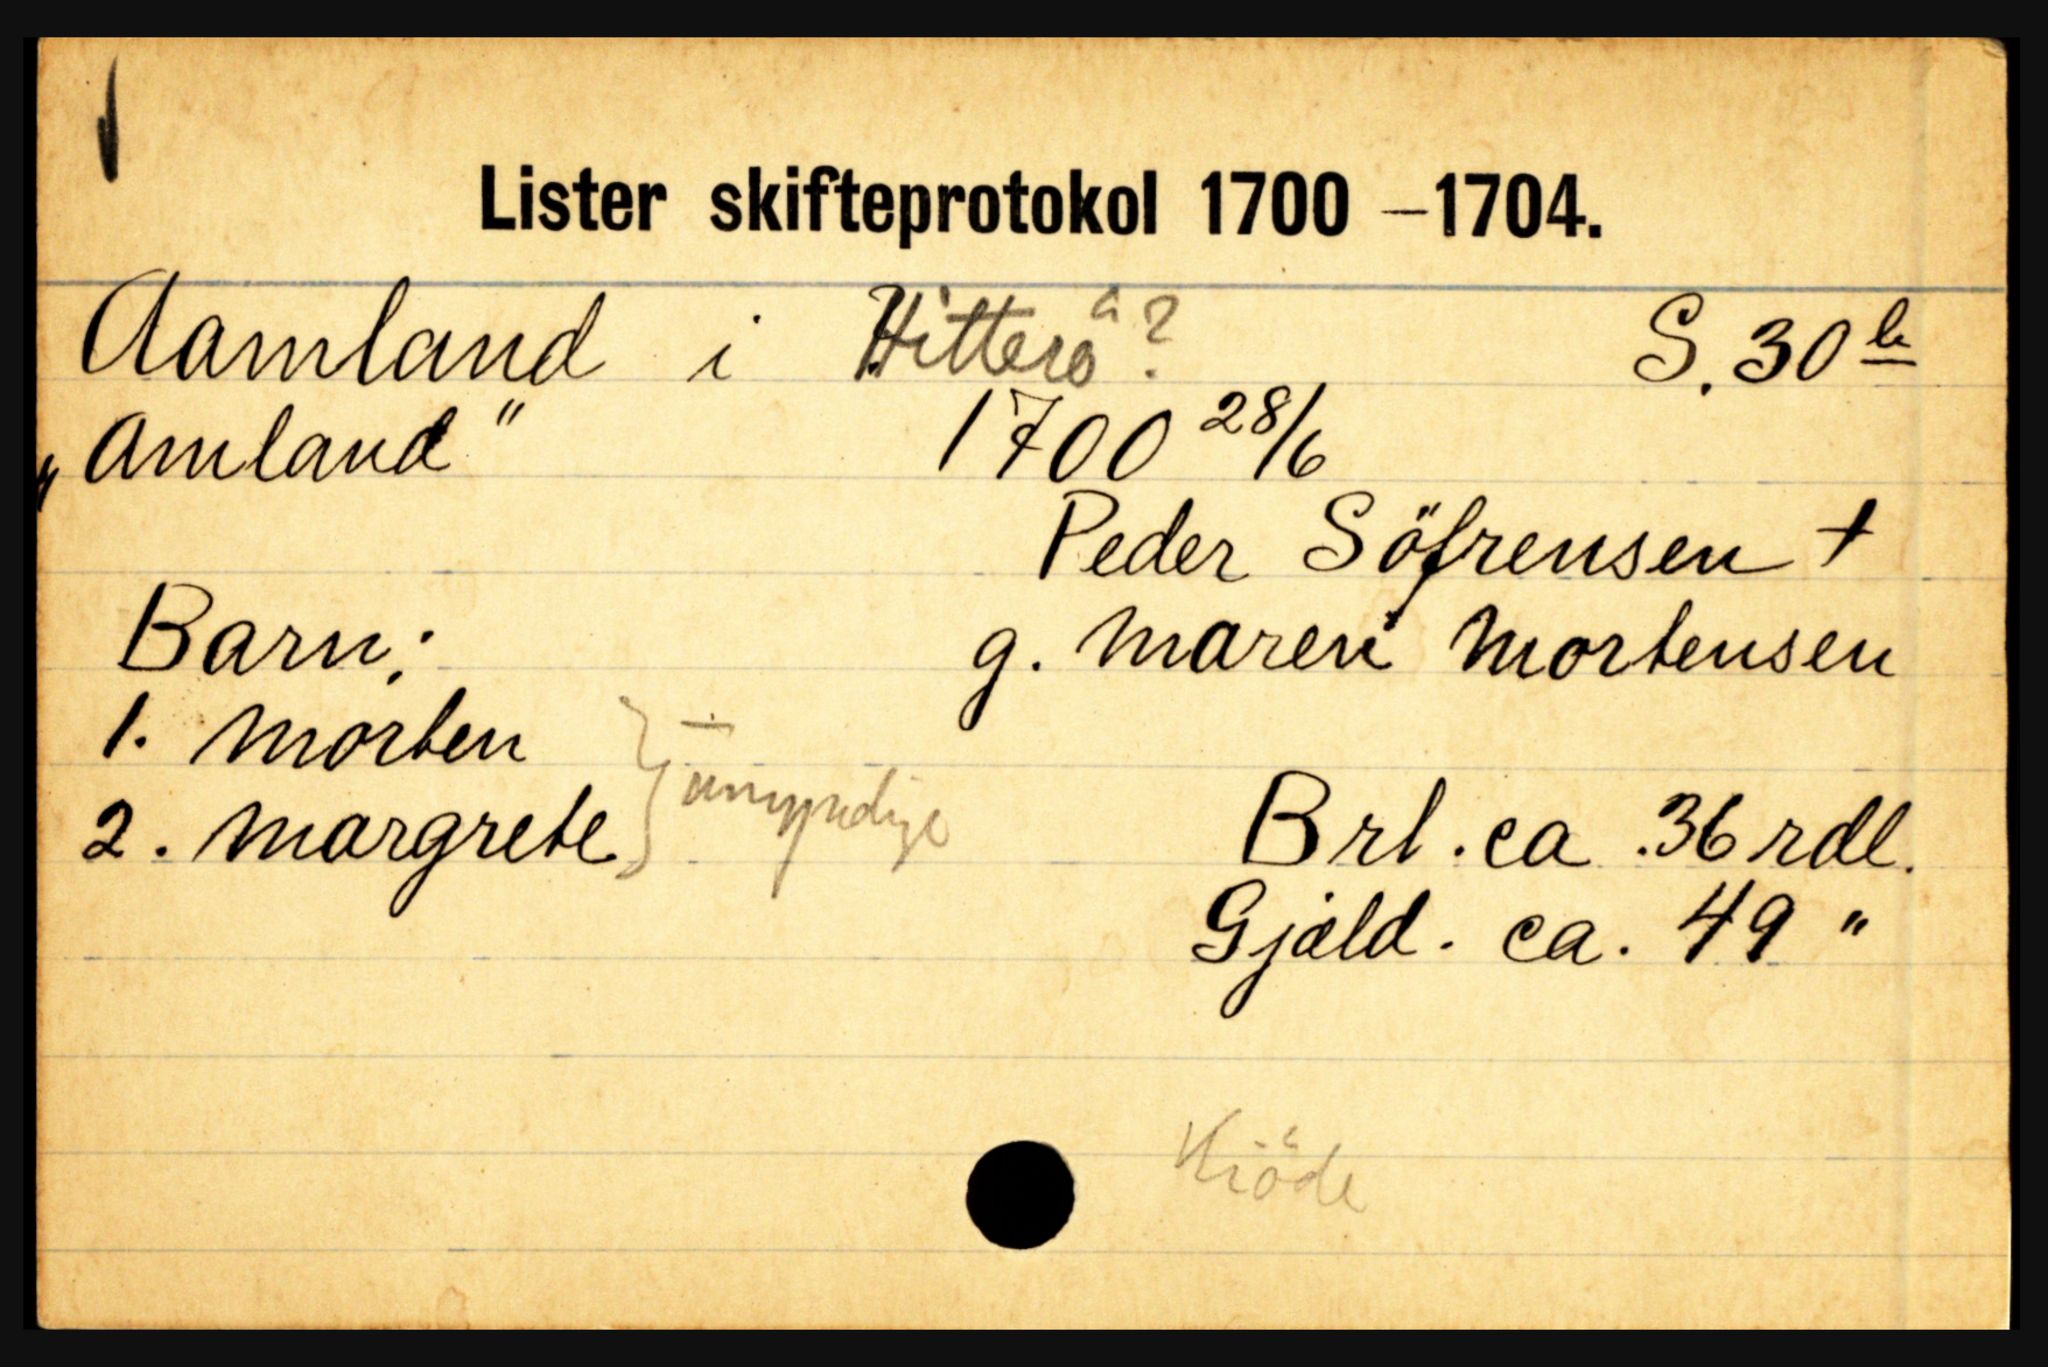 Lister skifteprotokol 1700 –1704.
Aamland i Hitterö? S. 30 b
„Amland" 1700 28/6
Peder Söfrensen +
Barn: g. Maren Mortensen
1. Morten
umyndige
2. Margrete Brt. ca. 36 rdl.
Gjæld. ca. 49 "